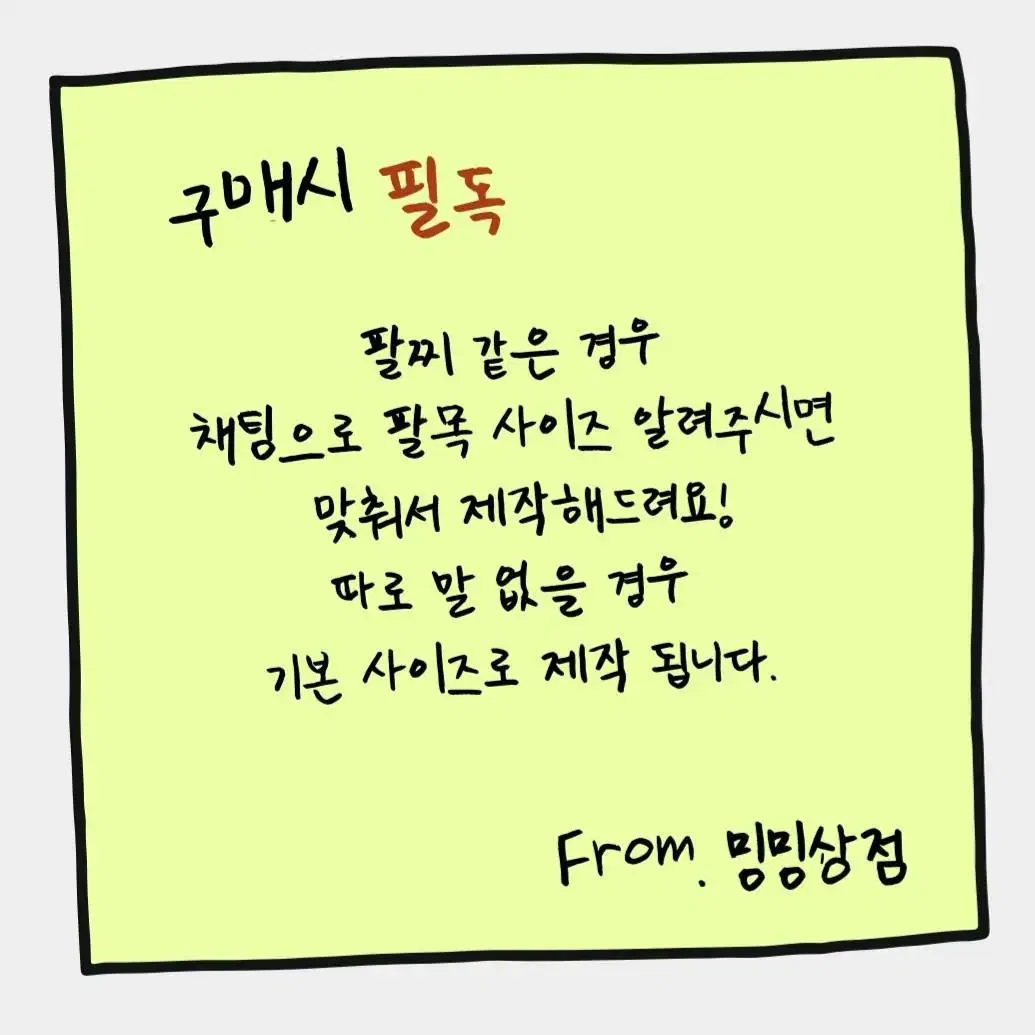 구매시 필독
팔찌 같은 경우
채팅으로 팔목 사이즈 알려주시면
맞춰서 제작해드려요!
따로 말 없을 경우
기본 사이즈로 제작 됩니다.
From. 밍밍상점